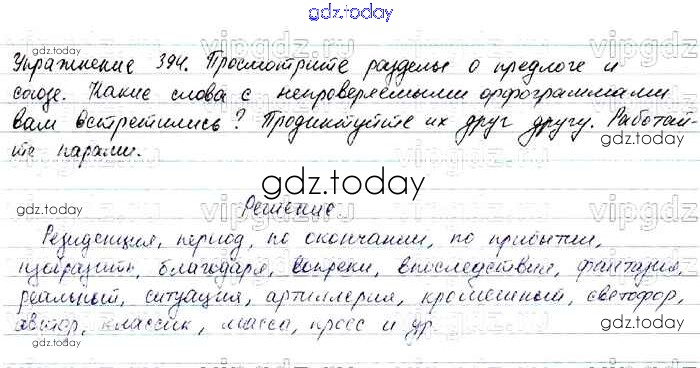 gdz.today
Упражнение 394. Просмотрите разделы о предлоге и
союзе. Какие слова с непроверяемыми орфограммами
вам встретились? Продиктуйте их друг другу. Работай-
те парами.
gdz.today
Решение
Резиденция, период, по окончании, по прибытии,
изобразить, благодаря, вопреки, впоследствии, фантазия,
реальный, ситуация, артиллерия, кромешный, светофор,
автор, классик, масса, кросс и др.